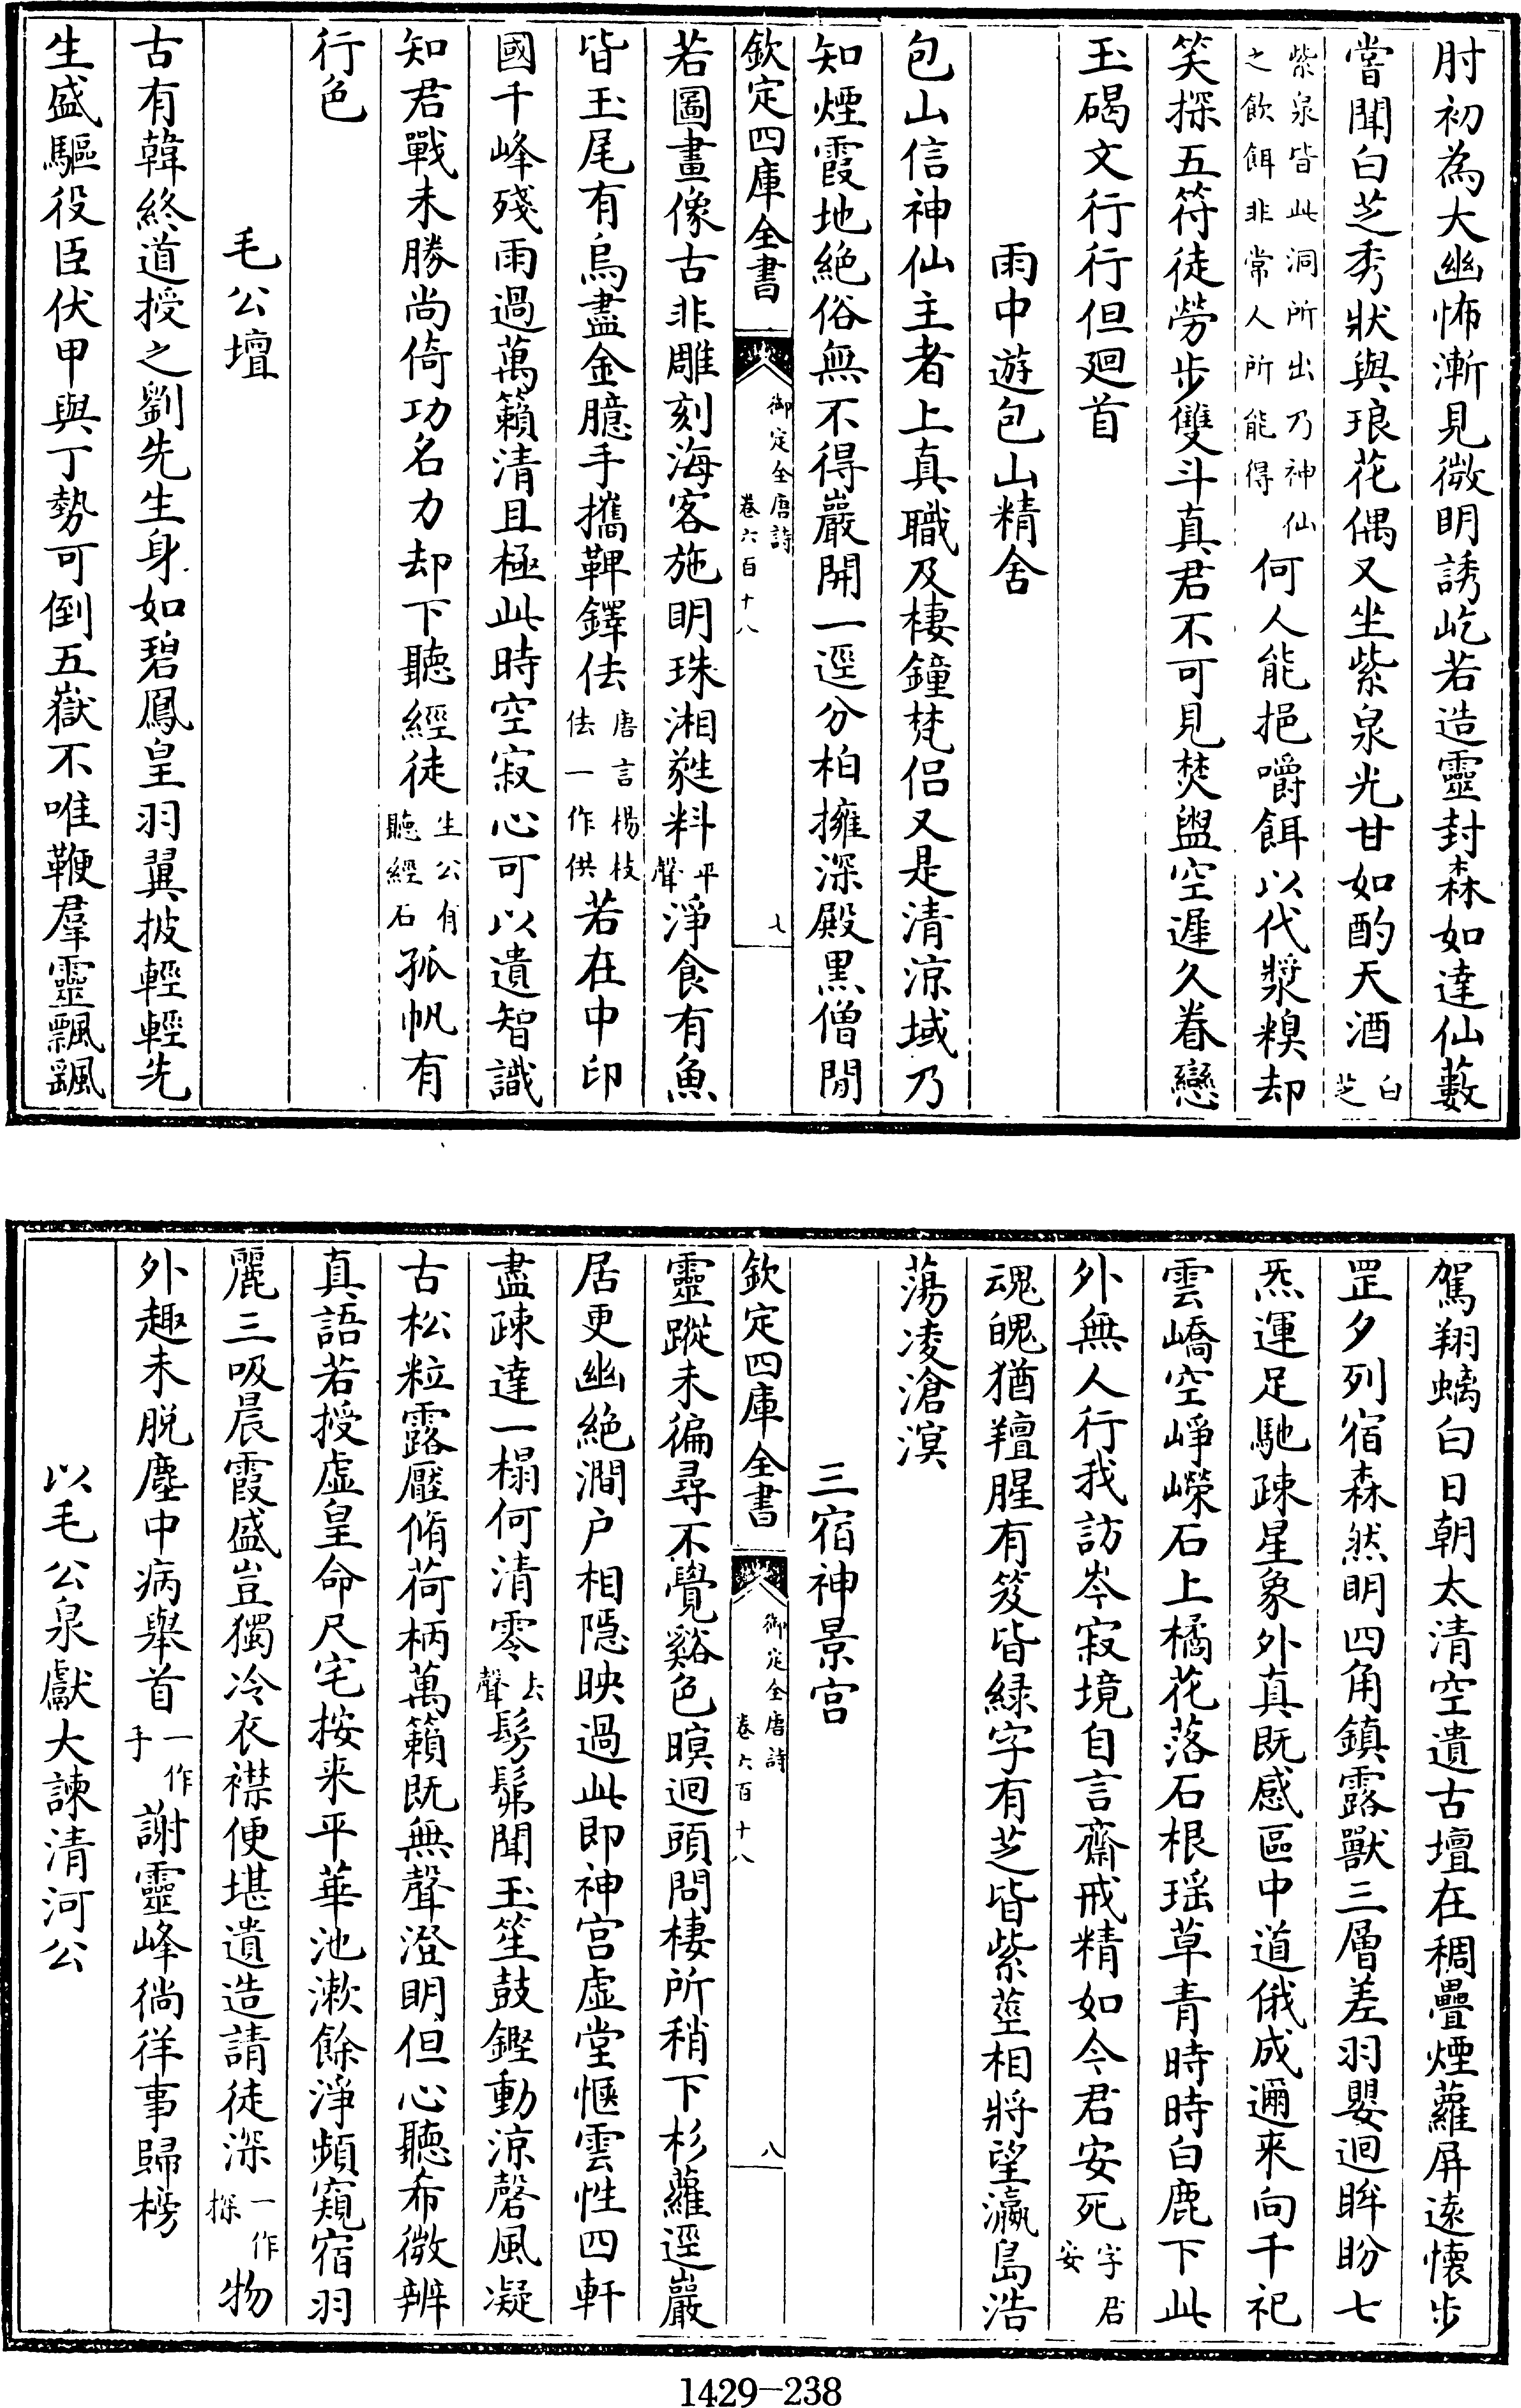 肘初為大幽怖漸見微明誘屹若造靈封森如達仙藪
嘗聞白芝秀狀與琅花偶又坐紫泉光甘如酌天酒白芝
紫泉皆此洞所出乃神仙之飲餌非常人所能得何人能挹嚼餌以代漿糗却
笑探五符徒勞步雙斗真君不可見焚盥空遲久眷戀
玉碣文行行但廻首
雨中遊包山精舍
包山信神仙主者上真職及棲鐘梵侣又是清涼域乃
知煙霞地絕俗無不得巖開一逕分柏擁深殿黒僧閒
欽定四庫全書
御定全唐詩
卷六百十八
七
若圖畫像古非雕刻海客施明珠湘蕤料平聲淨食有魚
皆玉尾有烏盡金臆手攜鞞鐸佉唐言楊枝佉一作供若在中印
國千峰殘雨過萬籟清且極此時空寂心可以遺智識
知君戰未勝尚倚功名力却下聽經徒生公有聽經石孤帆有
行色
毛公壇
古有韓終道授之劉先生身如碧鳳皇羽翼披輕輕先
生盛驅役臣伏甲與丁勢可倒五嶽不唯鞭羣靈飄飄
駕翔螭白日朝太清空遺古壇在稠疊煙蘿屏遠懐步
罡夕列宿森然明四角鎮露獸三層差羽嬰迴眸盼七
炁運足馳疎星象外真既感區中道俄成邇来向千祀
雲嶠空崢嶸石上橘花落石根瑶草青時時白鹿下此
外無人行我訪岑寂境自言齋戒精如今君安死字君安
魂魄猶羶腥有笈皆緑字有芝皆紫莖相將望瀛島浩
蕩凌滄溟
三宿神景宫
欽定四庫全書
御定全唐詩
卷六百十八
八
靈蹤未徧尋不覺谿色暝迴頭問棲所稍下杉蘿逕巖
居更幽絶澗户相隠映過此即神宫虚堂愜雲性四軒
盡疎達一榻何清零去聲髣髴聞玉笙鼓鏗動涼磬風凝
古松粒露壓脩荷柄萬籟既無聲澄明但心聽希微辨
真語若授虚皇命尺宅按来平華池漱餘淨頻窺宿羽
麗三吸晨霞盛豈獨冷衣襟便堪遺造請徒深一作探物
外趣未脱塵中病舉首一作手謝靈峰徜徉事歸榜
以毛公泉獻大諫清河公
1429-238